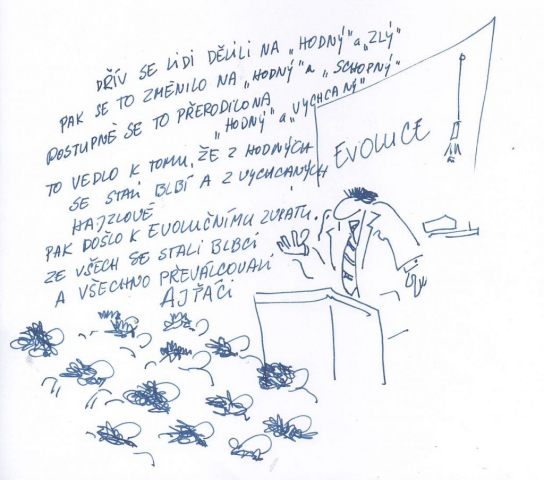 DŘÍV SE LIDI DĚLILI NA „HODNÝ" a „ZLÝ"
PAK SE TO ZMĚNILO NA „HODNÝ" a „SCHOPNÝ"
POSTUPNĚ SE TO PŘERODILO NA
„HODNÝ" a „VYCHCANÝ"
TO VEDLO K TOMU, ŽE Z HODNÝCH
SE STALI BLBÍ A Z VYCHCANÝCH
HAJZLOVÉ
PAK DOŠLO K EVOLUČNÍMU ZVRATU.
ZE VŠECH SE STALI BLBCI
A VŠECHNO PŘEVÁLCOVALI
AJŤÁCI
EVOLUCE